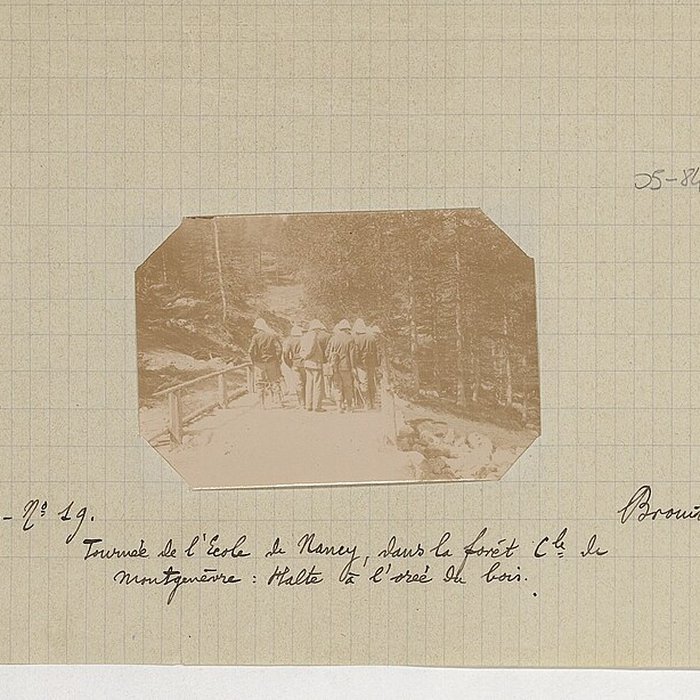 05-84
- Nº 19.
Tournée de l'Ecole de Nancy, dans la forêt Cle de
Montgenèvre : Halte à l'oreé du bois.